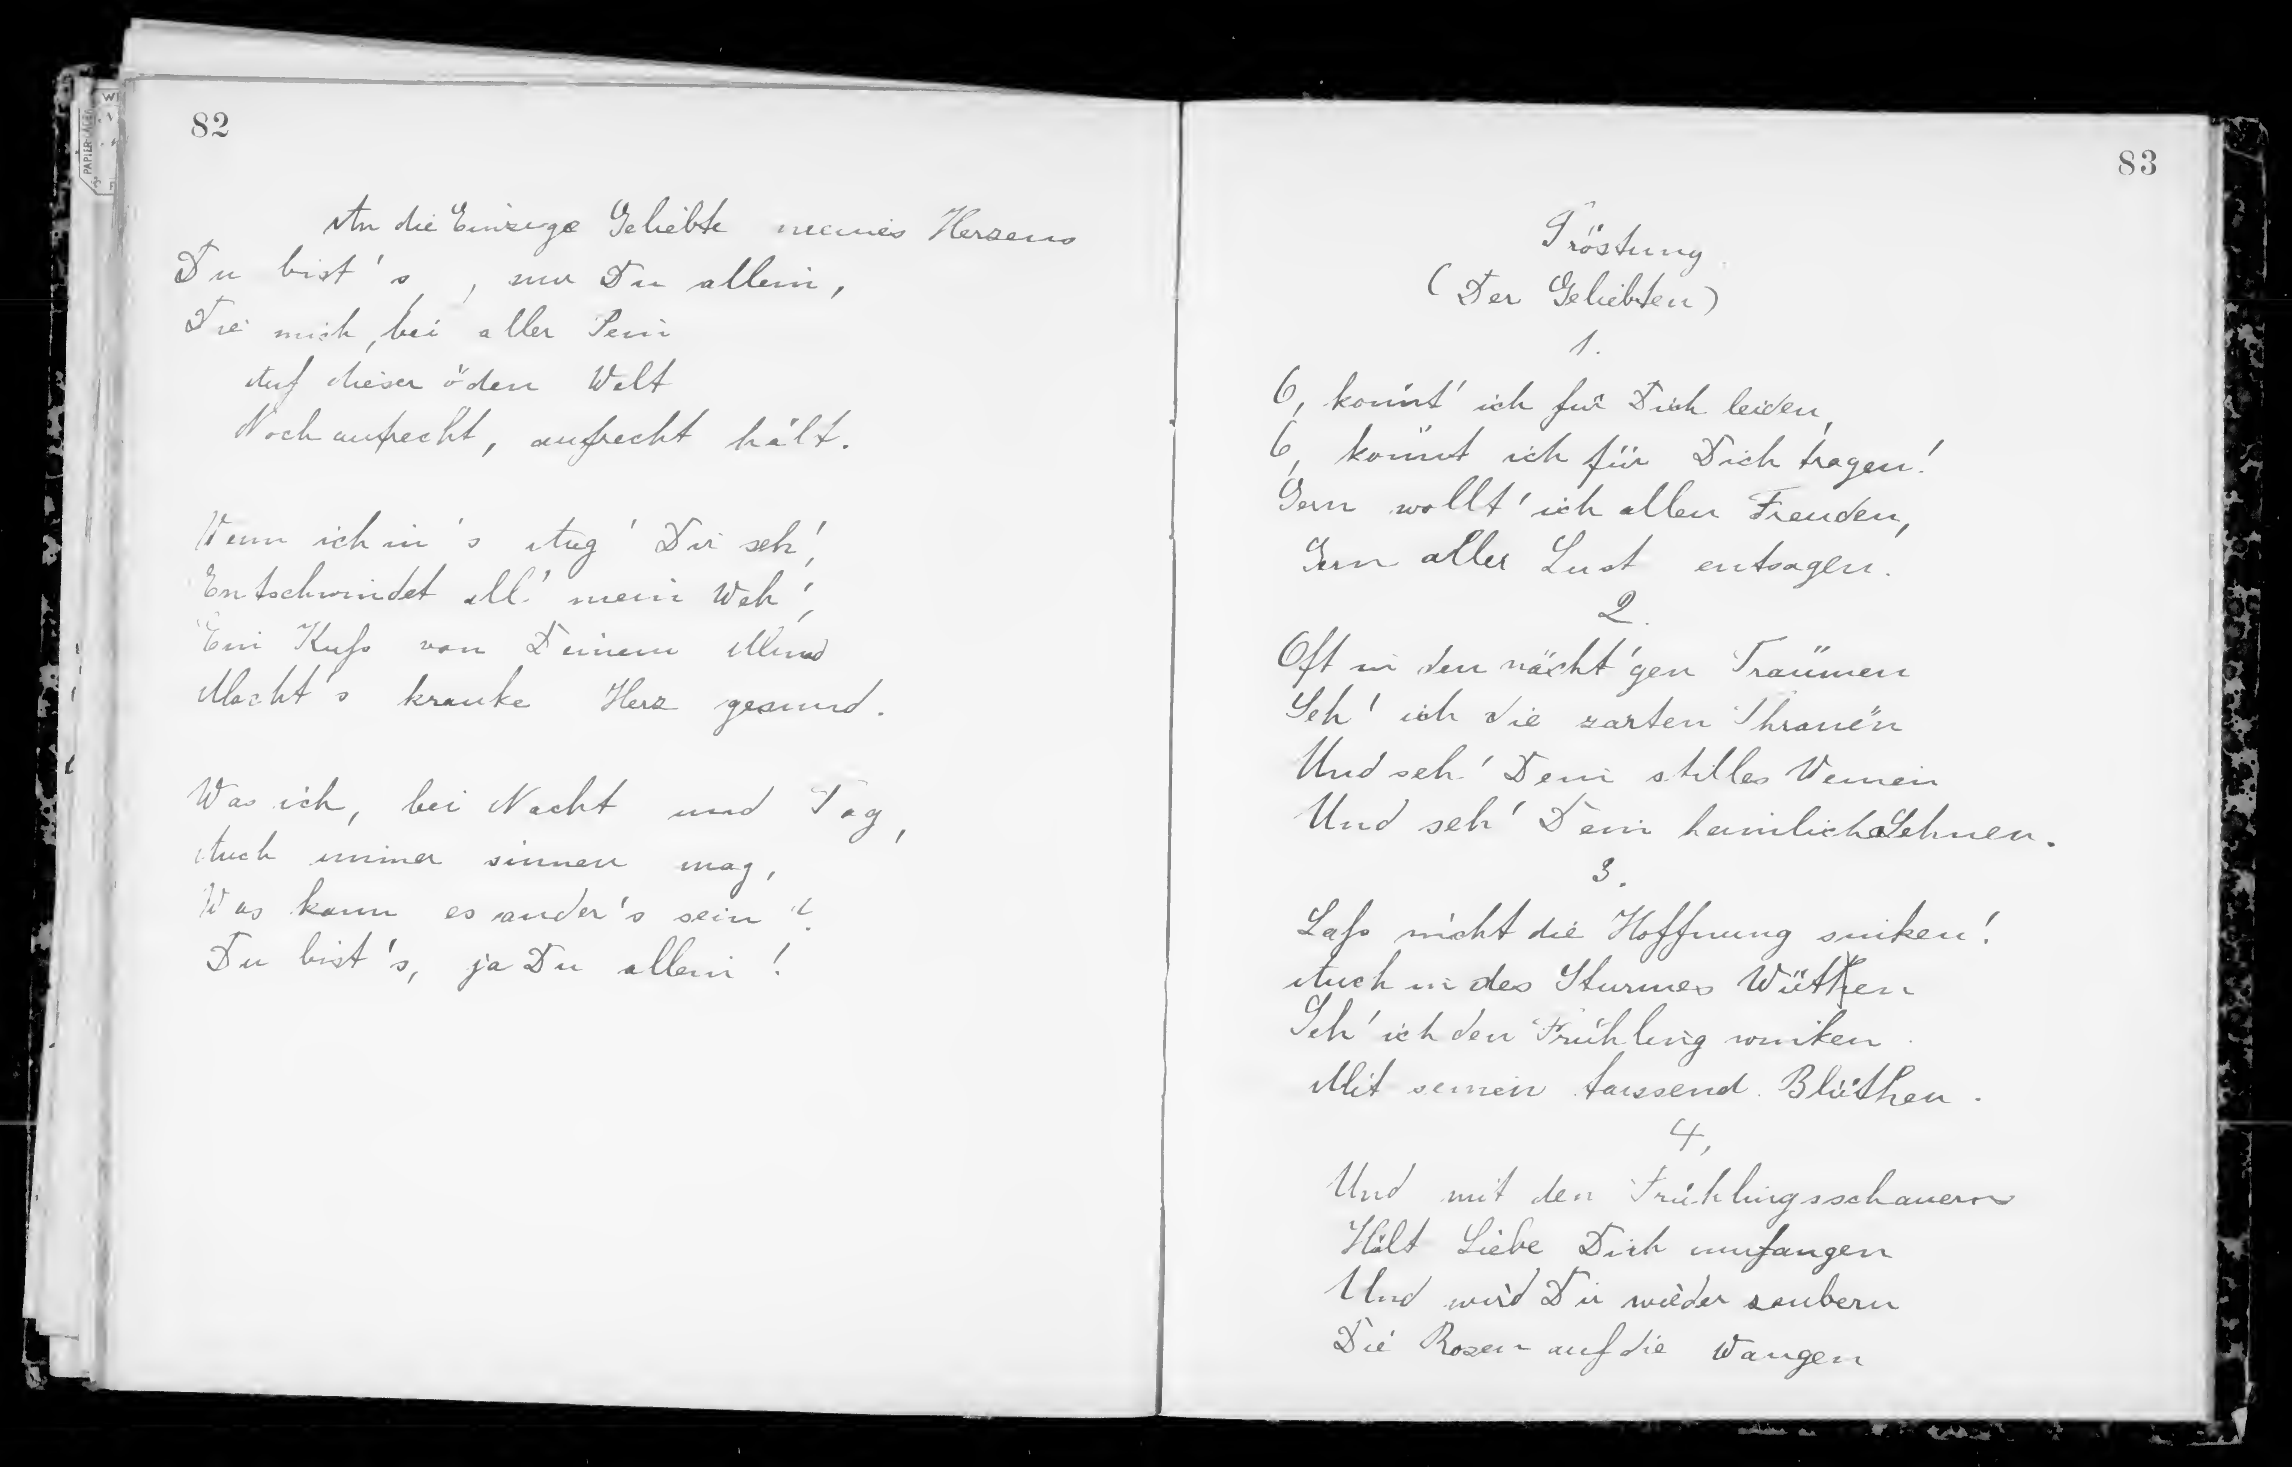 82
An die Einzige Geliebte meines Herzens
Du bist's, nur Du allein,
Die mich, bei aller Pein
Auf dieser öden Welt
Noch aufrecht, aufrecht hält.
Wenn ich in's Aug' Dir seh',
Entschwindet all' mein Weh',
Ein Kuss von Deinem Mund
Macht's kranke Herz gesund.
Was ich, bei Nacht und Tag,
Auch immer sinnen mag,
Was kann es ander's sein?
Du bist's, ja Du allein!
83
Tröstung
(Der Geliebten)
1.
O, könnt' ich für Dich leiden,
O, könnt ich für Dich tragen!
Gern wollt' ich allen Freuden,
Gern aller Lust entsagen.
2.
Oft in den nächt'gen Träumen
Seh' ich die zarten Thränen
Und seh' Dein stilles Weinen
Und seh' Dein heimliches Sehnen.
3.
Lass nicht die Hoffnung sinken!
Auch in des Sturmes Wüthen
Seh' ich den Frühling winken
Mit seinen taussend Blüthen.
4,
Und mit den Frühlingsschauern
Hält Liebe Dich umfangen
Und wird Dir wieder zaubern
Die Rosen auf die Wangen